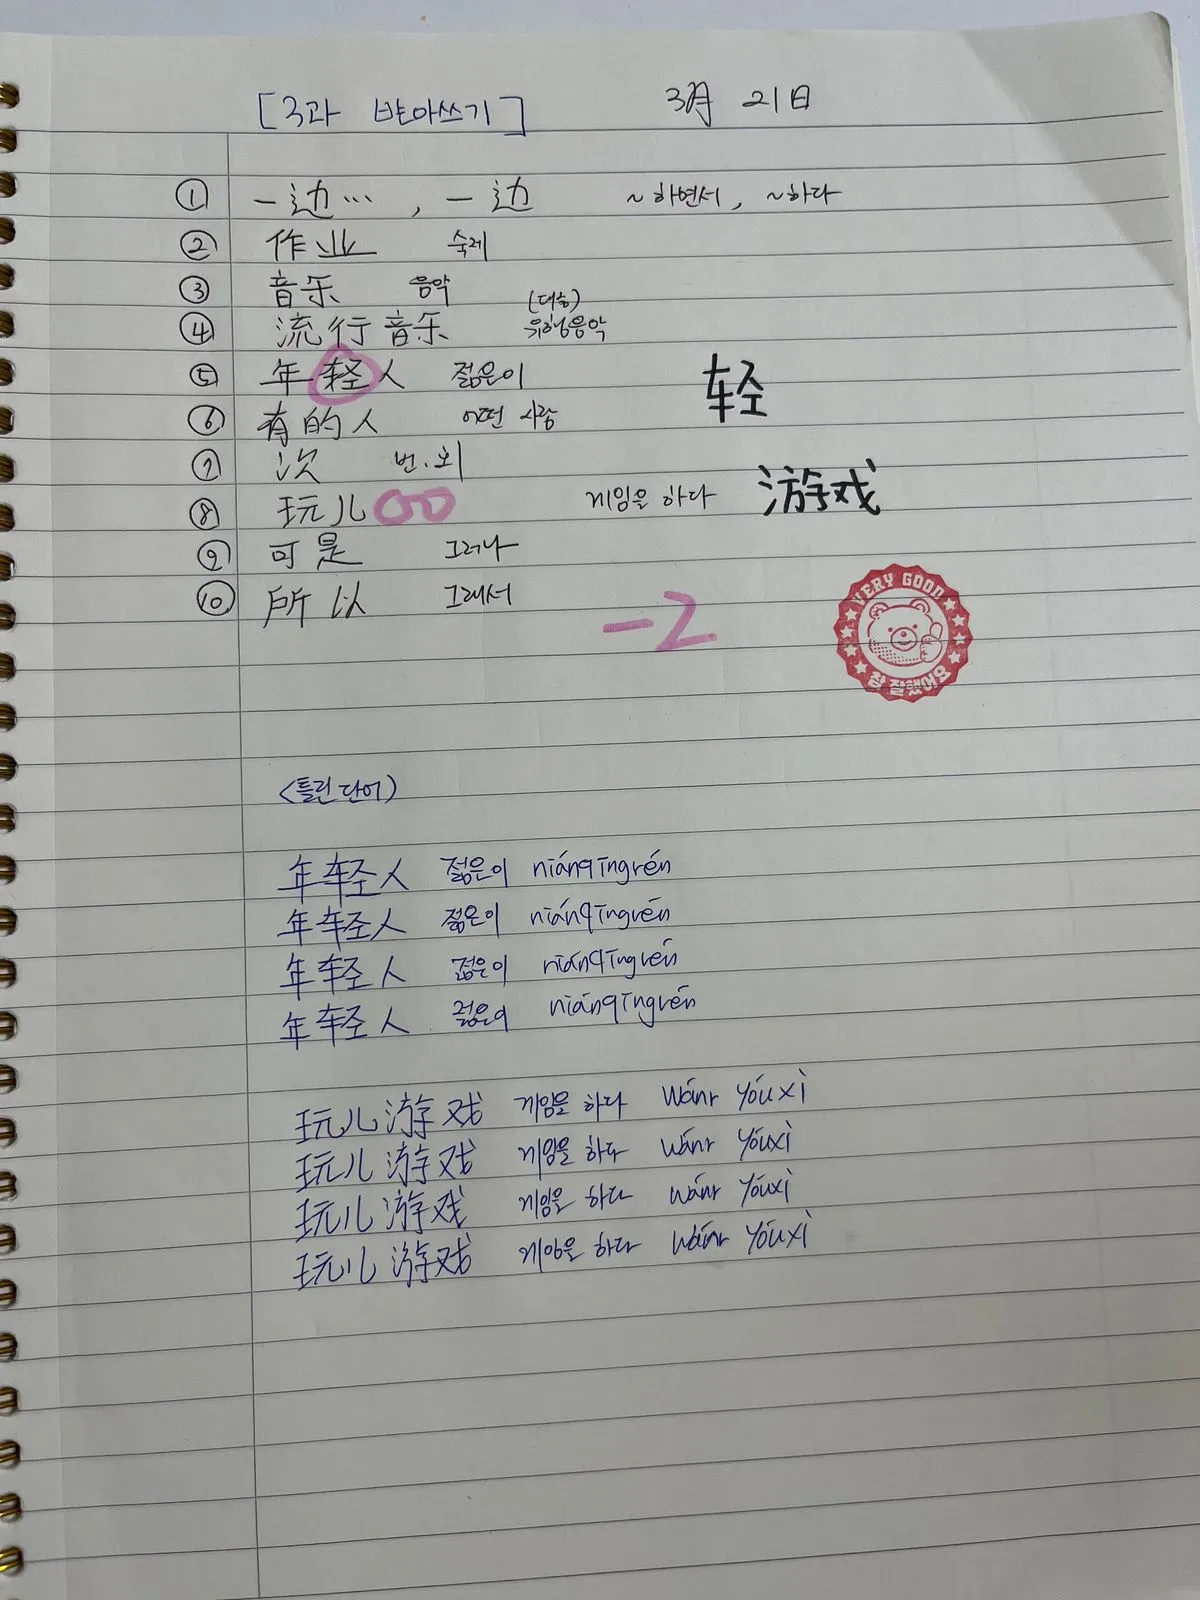 [3과 받아쓰기] 3月 21日
① 一边… , 一边 ~하면서, ~하다
② 作业 숙제
③ 音乐 음악
④ 流行音乐 (대중) 유행음악
⑤ 年轻人 젊은이 轻
⑥ 有的人 어떤 사람
⑦ 次 번.회
⑧ 玩儿 게임을 하다 游戏
⑨ 可是 그러나
⑩ 所以 그래서
-2
VERY GOOD
참 잘했어요
<틀린단어>
年轻人 젊은이 niánqīngrén
年轻人 젊은이 niánqīngrén
年轻人 젊은이 niánqīngrén
年轻人 젊은이 niánqīngrén
玩儿游戏 게임을 하다 wánr yóuxì
玩儿游戏 게임을 하다 wánr yóuxì
玩儿游戏 게임을 하다 wánr yóuxì
玩儿游戏 게임을 하다 wánr yóuxì